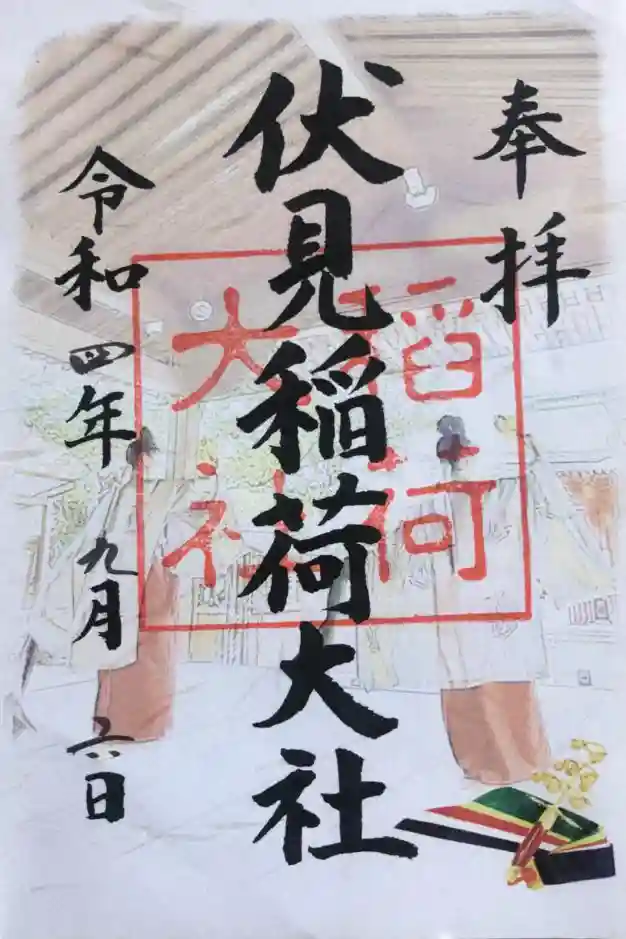 奉拝
伏見稲荷大社
稲荷
大社
令和四年九月六日